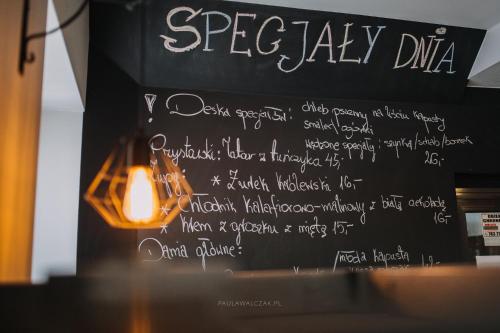 SPECJAŁY DNIA
! Deska specjałów: chleb pszenny na liściu kapusty
smalec/ogórki
wędzone specjały: szynka/schab/boczek
26,-
Przystawki: Tatar z tuńczyka 45,-
Zupy:
* Żurek królewski 16,-
* Chłodnik kalafiorowo-malinowy z białą czekoladą
* Krem z groszku z miętą 15,-
Dania główne:
młoda kapusta
PAULAWALCZAK.PL